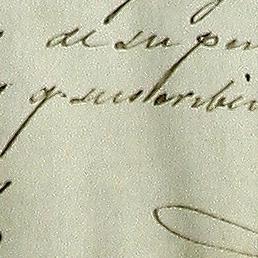 de su pu
q. suscribi